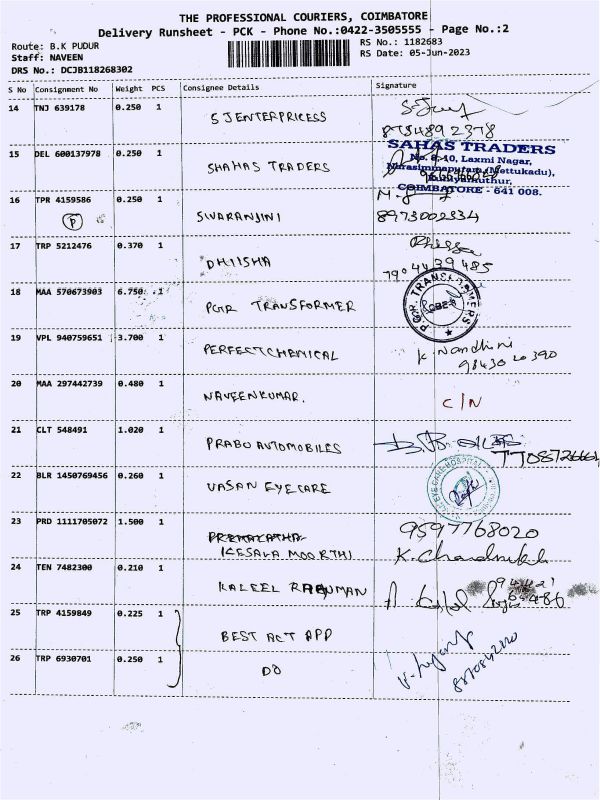 THE PROFESSIONAL COURIERS, COIMBATORE
Delivery Runsheet - PCK - Phone No.:0422-3505555 - Page No.:2
Route: B.K PUDUR RS No.: 1182683
Staff: NAVEEN RS Date: 05-Jun-2023
DRS No.: DCJB118268302
S No Consignment No Weight PCS Consignee Details Signature
14 TNJ 639178 0.250 1 SJENTERPRICESS
15 DEL 600137978 0.250 1 SHAHAS TRADERS
SAHAS TRADERS
No. 8-10, Laxmi Nagar,
Narasimmapuram (Mettukadu),
Kuniyamuthur,
COIMBATORE - 641 008.
16 TPR 4159586 0.250 1 SWARANJINI 8973002834
P
17 TRP 5212476 0.370 1 DHIISHA
7904439485
18 MAA 570673903 6.750 1 PGR TRANSFORMER
P.G.R. TRANSFORMERS
19 VPL 940759651 3.700 1 PERFECTCHEMICAL K. Nandhini
98430 20390
20 MAA 297442739 0.480 1 NAVEENKUMAR. C/N
21 CLT 548491 1.020 1 PRABO AUTOMOBILES
22 BLR 1450769456 0.260 1 VASAN EYECARE
EYE CARE HOSPITAL
23 PRD 1111705072 1.500 1 9597768020
KESALA MOORTHI
24 TEN 7482300 0.210 1 KALEEL
25 TRP 4159849 0.225 1 BEST ACT APP
26 TRP 6930701 0.250 1 DO